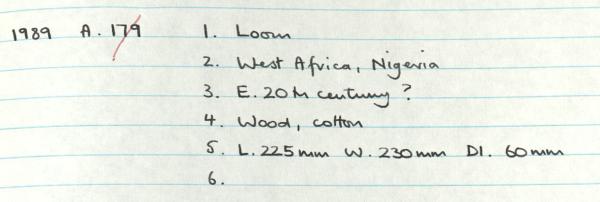 1989 A. 179 1. Loom
2. West Africa, Nigeria
3. E. 20th century ?
4. Wood, cotton
5. L. 225mm W. 230mm DI. 60mm
6.